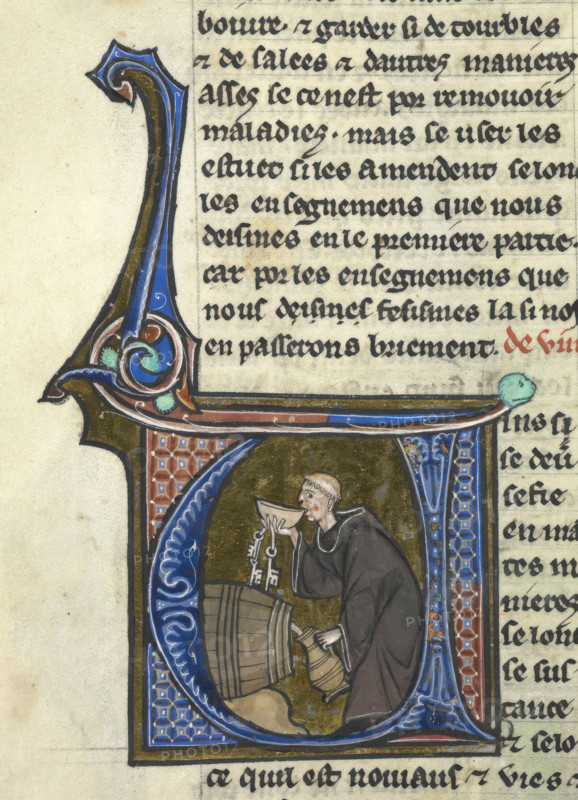 boivre · ⁊ garder si de tourbles
⁊ de salees ⁊ dautres manieres
asses se ce nest por remouoir
maladies · mais se user les
estuet si les amendent selonc
les ensegnemens que nous
desimes en le premiere partie ·
car por les ensegnemens que
nous desimes
en passerons briement. de vin
ins
se deu
en ma
tes m
nieres
selonc
se sus
tance
⁊ selo
ce quil est nouiaus ⁊ vies ⁊
PHOTO12